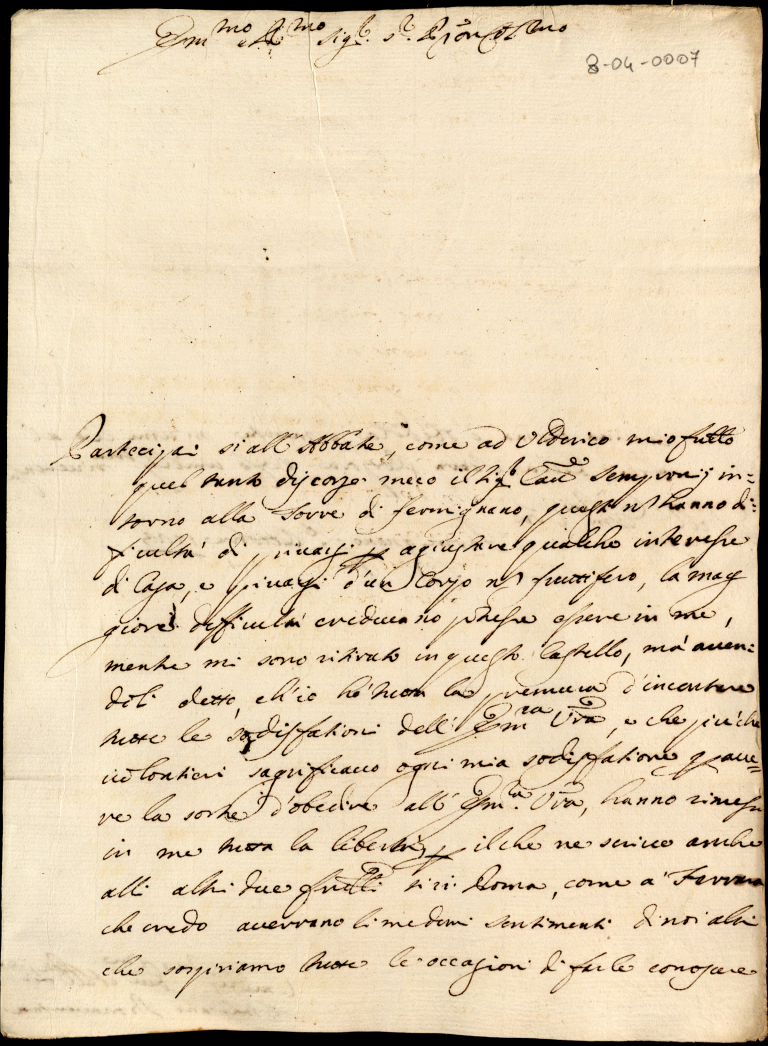 Em.mo e R.mo Sig.r S.r P.ron Col.mo
8-04-0007
Partecipai si all' Abbate, come ad Olderico mio frello
quel tanto discorse meco il Sig.r Caū Sempronij in=
torno alla Torre di Fermignano, questi nō hanno di=
ficultà di privarsi p agiustare qualche interesse
di Casa, e privarsi d'un Corpo nō fruttifero, la mag
giore difficultà credevano potesse essere in me,
mentre mi sono ritirato in questo Castello, mà auen=
doli detto, ch'io hò tutta la premura d'incontrare
tutte le sodisfationi dell' Em.ra Vrā, e che più che
uolontieri sagrificauo ogni mia sodisfatione p aue=
re la sorte d'obedire all' Em.a Vrā, hanno rimesso
in me tutta la libertà, p il che ne scrivo anche
alli altri due frelli si in Roma, come a' Ferrara
che credo auerrano li medemi sentimenti di noi altri
che sospiriamo tutte le occasioni di farle conoscere